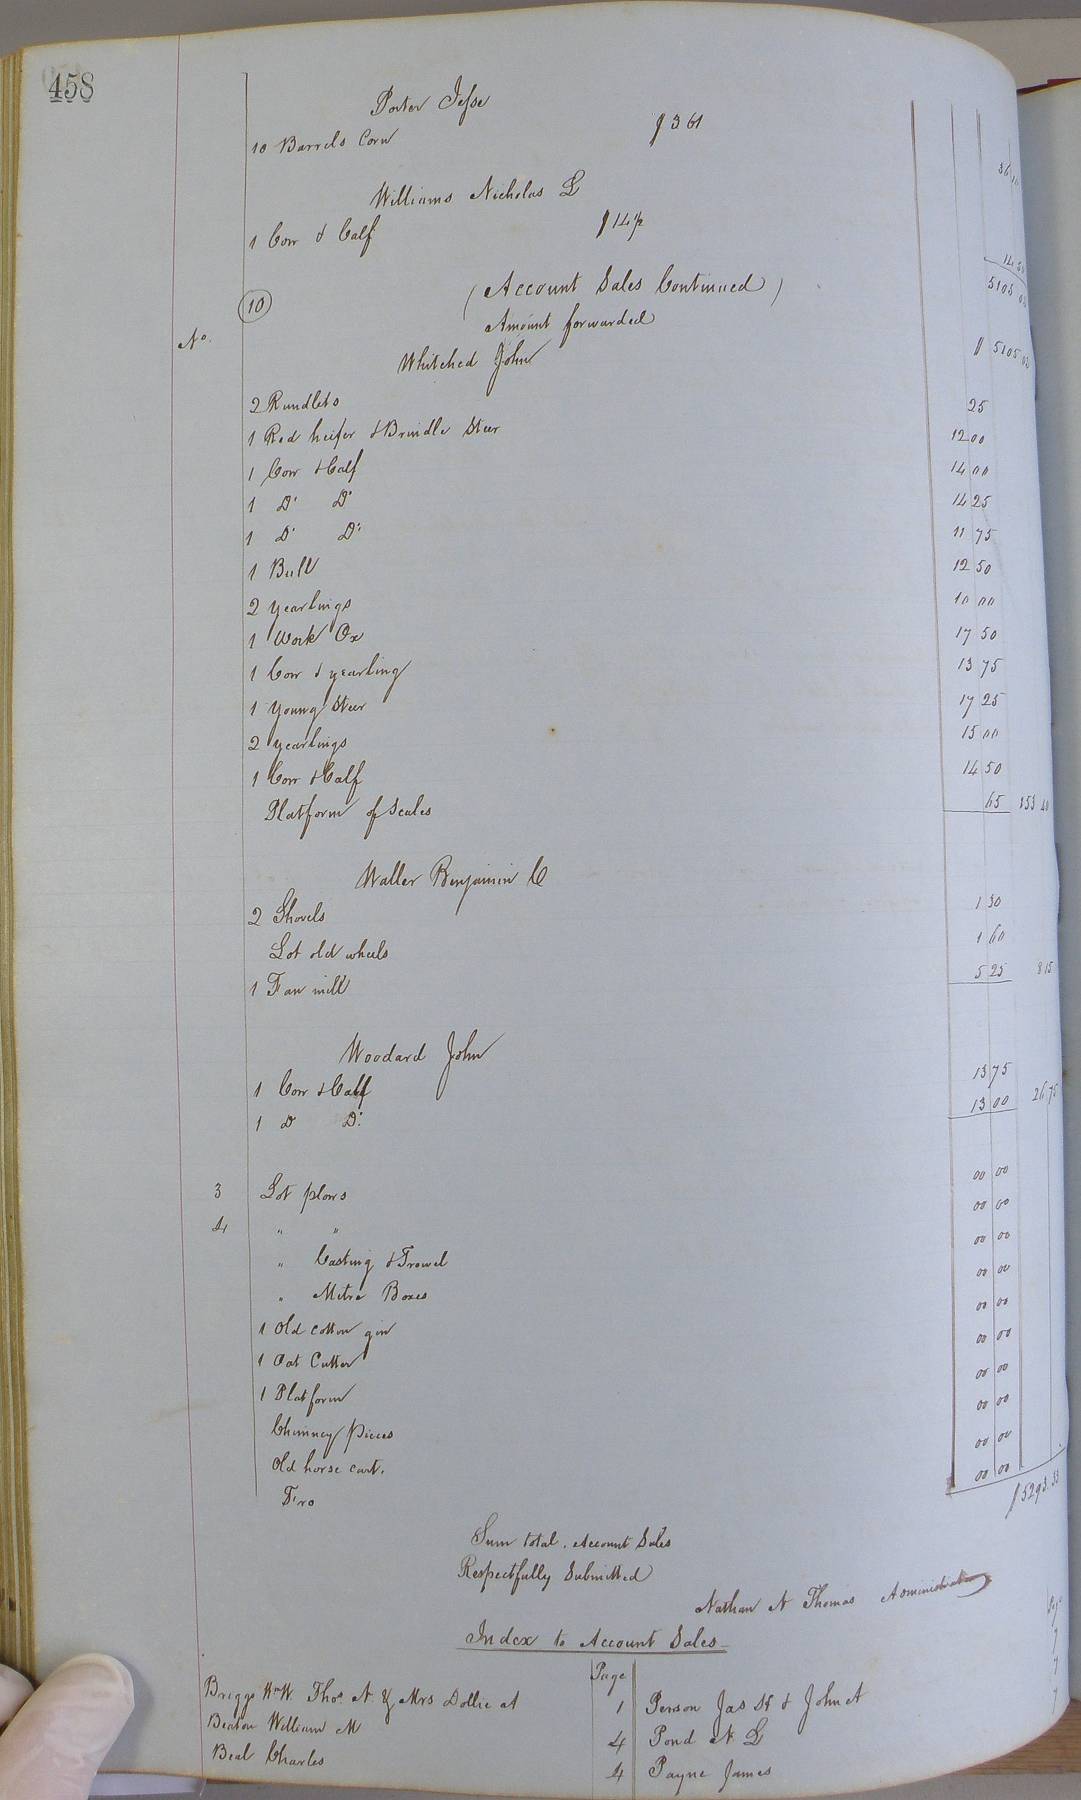 458
Porter Jesse
10 Barrels Corn $ 3 61
Williams Nicholas L
1 Cow & Calf $ 14 1/2 14 50
5105 03
10 (Account Sales Continued)
No. Amount forwarded $ 5105 03
Whitehed John
2 Rundlets 25
1 Red heifer & Brindle Steer 12 00
1 Cow & Calf 14 00
1 Do Do 14 25
1 Do Do 11 75
1 Bull 12 50
2 yearlings 10 00
1 Work Ox 17 50
1 Cow & yearling 13 75
1 Young Steer 17 25
2 yearlings 15 00
1 Cow & Calf 14 50
Platform of Scales 65 153 40
Waller Benjamin C
2 Shovels 1 30
Lot old wheels 1 60
1 Fan mill 5 25 8 15
Woodard John
1 Cow & Calf 13 75
1 D Do 13 00 26 75
3 Lot plows 00 00
4 " " 00 00
" Casting & Trowel 00 00
" Mitre Boxes 00 00
1 Old cotton gin 00 00
1 Oat Cutter 00 00
1 Platform 00 00
Chimney Pieces 00 00
Old horse cart. 00 00
Fro 00 00
$5293.33
Sum total. Account Sales
Respectfully Submitted
Nathan N Thomas Administrator
Index to Account Sales
Page
Briggs Wm W. Thos. N. & Mrs Dollie A 1 Person Jas H & John A
Beaton William M 4 Pond N L
Beal Charles 4 Payne James